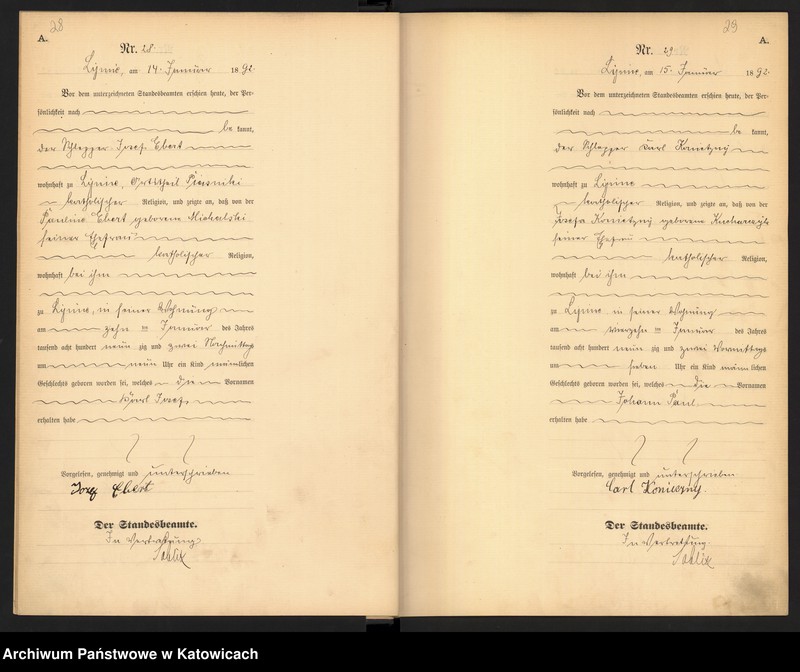 28
A.
Nr. 28.
Lipine, am 14. Januar 1892.
Vor dem unterzeichneten Standesbeamten erschien heute, der Per-
sönlichkeit nach
be kannt,
der Schlepper Josef Ebert
wohnhaft zu Lipine, Ortstheil Piasniki
katholischer Religion, und zeigte an, daß von der
Pauline Ebert geborenen Michalski
seiner Ehefrau
katholischer Religion,
wohnhaft bei ihm
zu Lipine, in seiner Wohnung
am zehn ten Januar des Jahres
tausend acht hundert neun zig und zwei Nachmittags
um neun Uhr ein Kind männlichen
Geschlechts geboren worden sei, welches die Vornamen
Karl Josef
erhalten habe
Vorgelesen, genehmigt und unterschrieben
Josef Ebert
Der Standesbeamte.
In Vertretung
29
A.
Nr. 29
Lipine, am 15. Januar 1892.
Vor dem unterzeichneten Standesbeamten erschien heute, der Per-
sönlichkeit nach
be kannt,
der Schlepper Karl
wohnhaft zu Lipine
katholischer Religion, und zeigte an, daß von der
Josefa geborenen
seiner Ehefrau
katholischer Religion,
wohnhaft bei ihm
zu Lipine in seiner Wohnung
am vierzehn ten Januar des Jahres
tausend acht hundert neun zig und zwei Vormittags
um sieben Uhr ein Kind männlichen
Geschlechts geboren worden sei, welches die Vornamen
Johann Paul
erhalten habe
Vorgelesen, genehmigt und unterschrieben
Carl Konieczny.
Der Standesbeamte.
In Vertretung.
Archiwum Państwowe w Katowicach